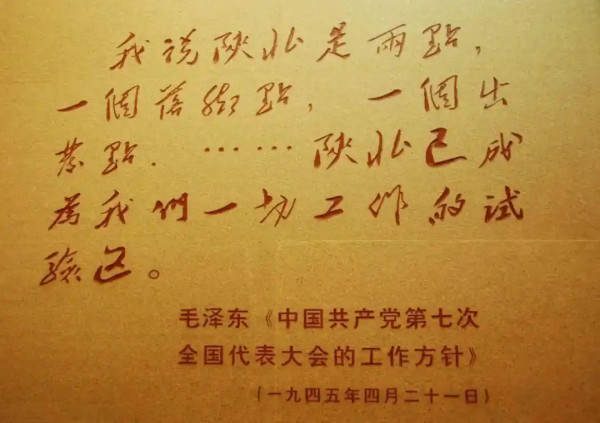 我说陝北是兩點，
一個落腳點，一個出
發點．……陝北已成
為我們一切工作的试
驗区。
毛泽东《中国共产党第七次
全国代表大会的工作方针》
（一九四五年四月二十一日）